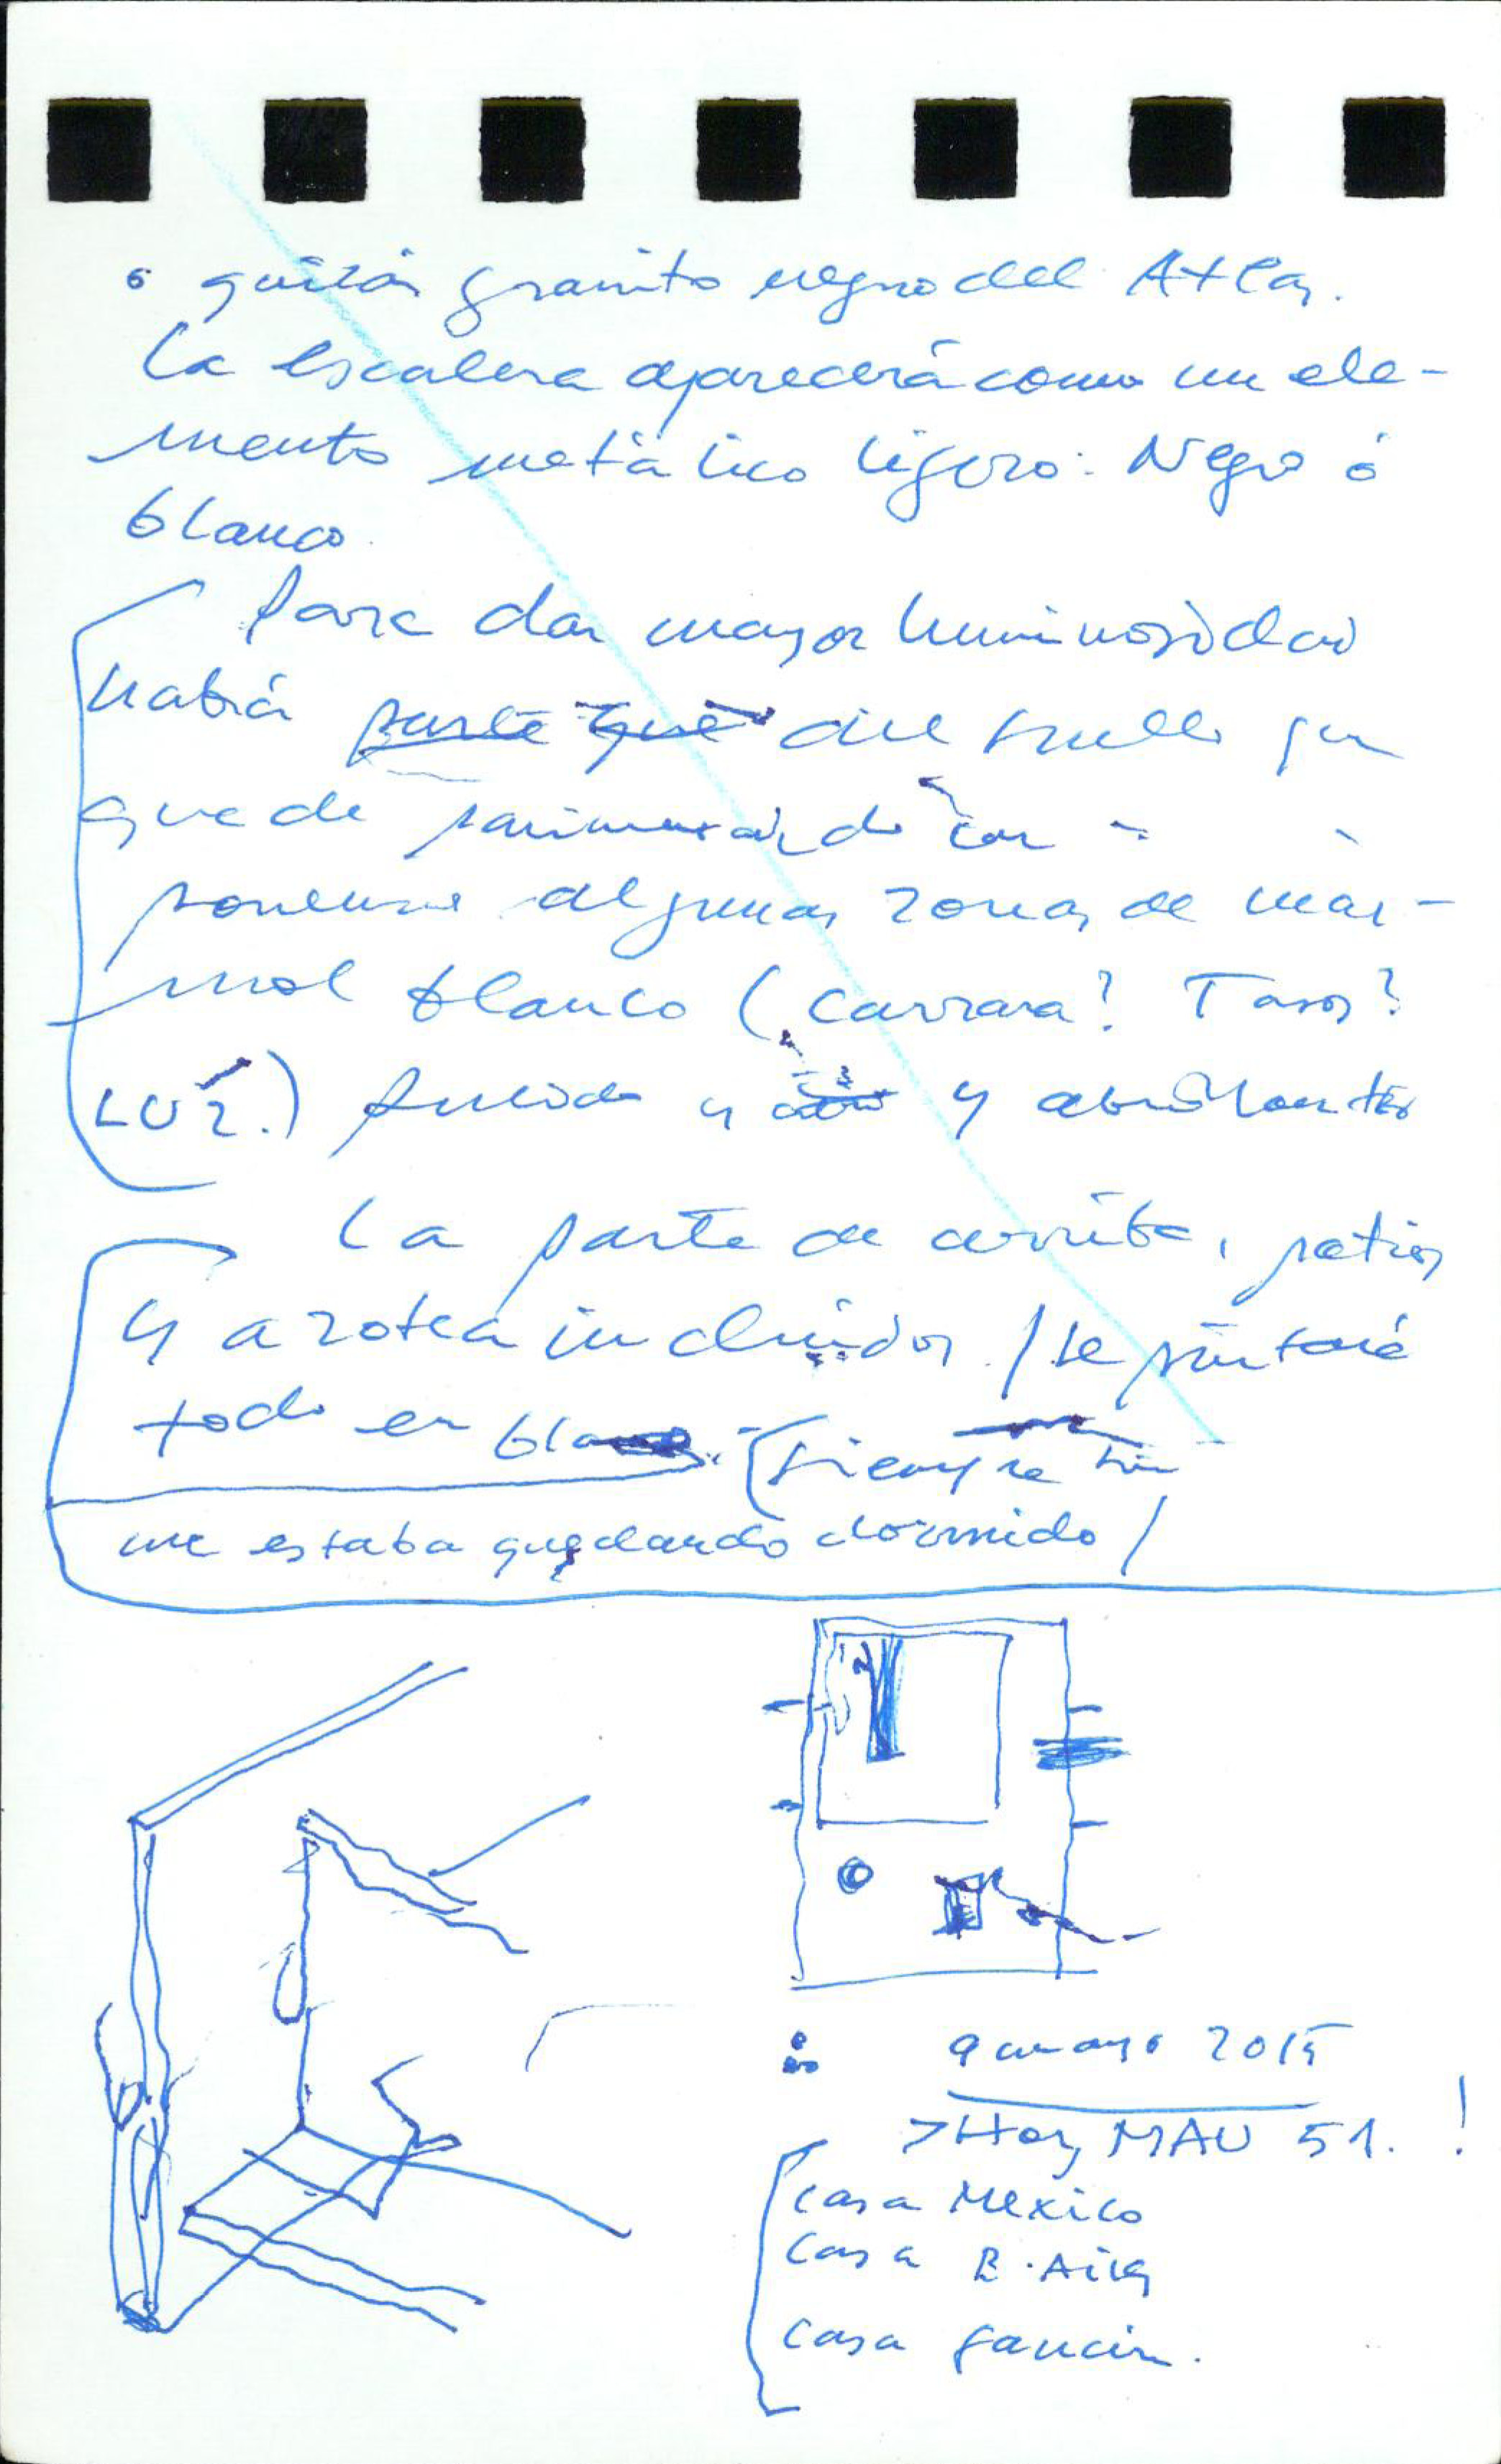 ó quizás granito negro del Atlas.
La escalera aparecerá como un ele-
mento metálico ligero: Negro ó
blanco.
Para dar mayor luminosidad
habrá parte que del suelo que
quede
ponemos algunas zonas de már-
mol blanco (Carrara? Tasos?
LUZ?) pulido y y abrillantado
La parte de arriba, patios
y azotea incluidos / se pintará
todo en blanco. (siempre
me estaba quedando dormido /
9 mayo 2015
> Hoy MAU 51. !
Casa Mexico
Casa B. Aires
Casa Gaucín.